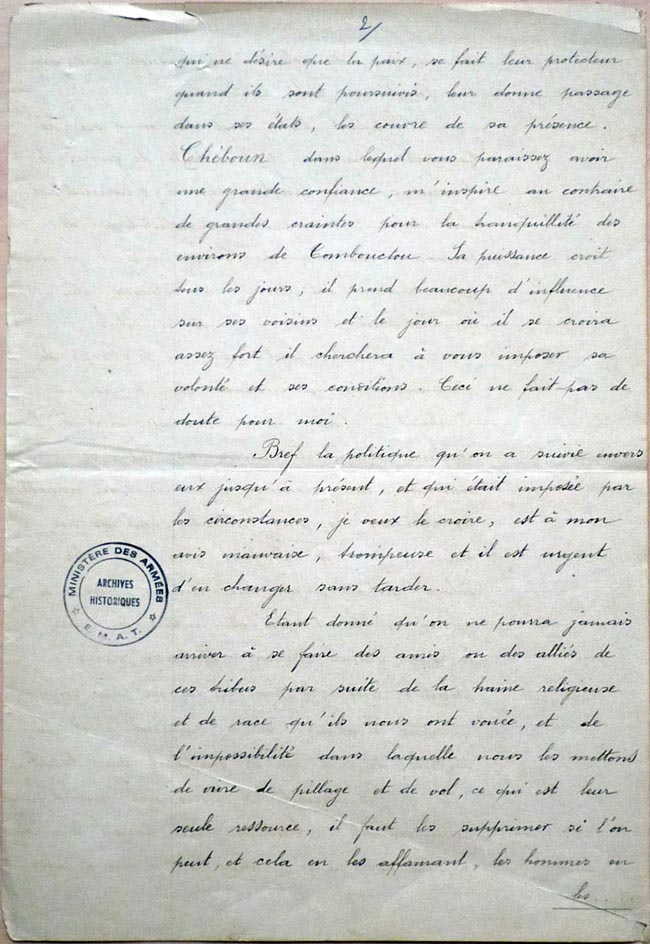 2/
qui ne désire que la paix, se fait leur protecteur
quand ils sont poursuivis, leur donne passage
dans ses états, les couvre de sa présence.
Chéboun dans lequel vous paraissez avoir
une grande confiance, m'inspire au contraire
de grandes craintes pour la tranquillité des
environs de Tombouctou. Sa puissance croit
tous les jours; il prend beaucoup d'influence
sur ses voisins et le jour où il se croira
assez fort il cherchera à vous imposer sa
volonté et ses conditions. Ceci ne fait pas de
doute pour moi.
Bref la politique qu'on a suivie envers
eux jusqu'à présent, et qui était imposée par
les circonstances, je veux le croire, est à mon
avis mauvaise, trompeuse et il est urgent
d'en changer sans tarder.
Etant donné qu'on ne pourra jamais
arriver à se faire des amis ou des alliés de
ces tribus par suite de la haine religieuse
et de race qu'ils nous ont vouée, et de
l'impossibilité dans laquelle nous les mettons
de vivre de pillage et de vol, ce qui est leur
seule ressource, il faut les supprimer si l'on
peut, et cela en les affamant, les hommes en
les...
MINISTÈRE DES ARMÉES
ARCHIVES
HISTORIQUES
E.M.A.T.